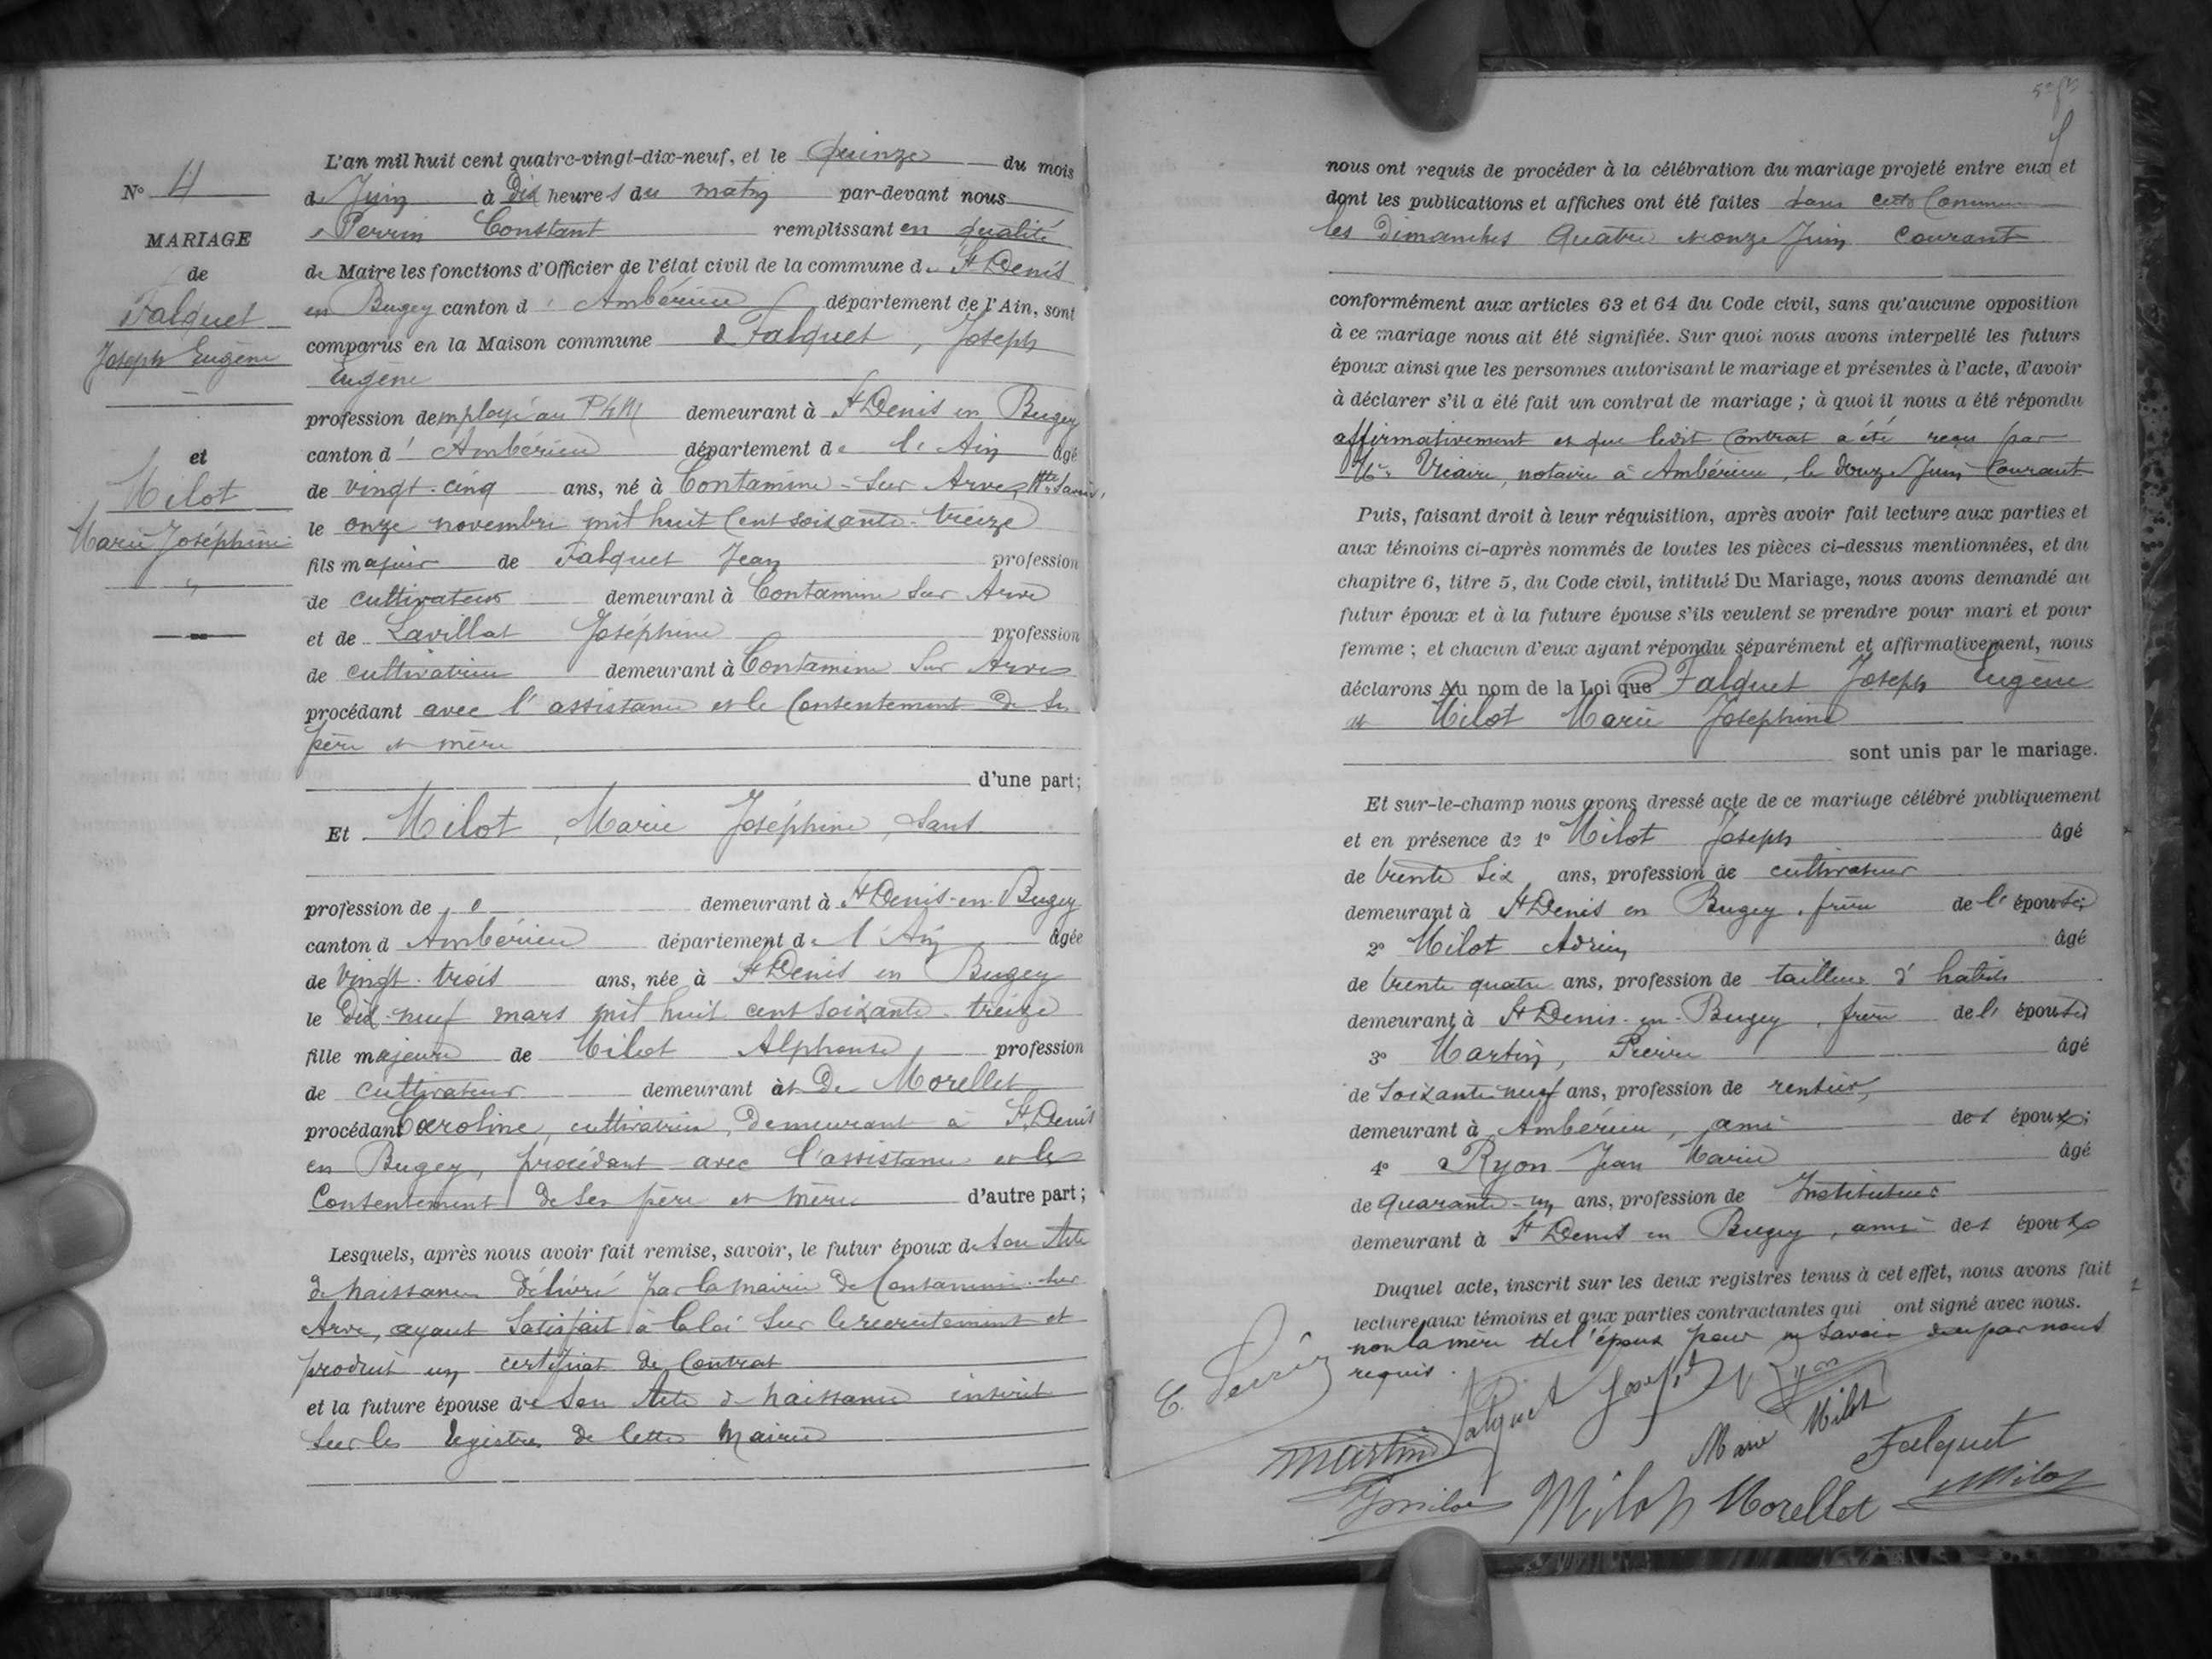 L'an mil huit cent quatre-vingt-dix-neuf, et le quinze du mois
de Juin à dix heures du matin par-devant nous
Perrin Constant remplissant en qualité
de Maire les fonctions d'Officier de l'état civil de la commune de St Denis
en Bugey canton d'Ambérieu département de l'Ain, sont
comparus en la Maison commune Falquet, Joseph
Eugène
profession d'employé au PLM demeurant à St Denis en Bugey
canton d'Ambérieu département de l'Ain âgé
de vingt-cinq ans, né à Contamine-sur Arve, Hte Savoie,
le onze novembre mil huit cent soixante-treize
fils majeur de Falquet Jean profession
de cultivateur demeurant à Contamine sur Arve
et de Lavillat Joséphine profession
de cultivatrice demeurant à Contamine sur Arve
procédant avec l'assistance et le consentement de ses
père et mère
d'une part;
Et Milot, Marie Joséphine, sans
profession de demeurant à St Denis-en-Bugey
canton d Ambérieu département de l'Ain âgée
de vingt-trois ans, née à St Denis en Bugey
le dix-neuf mars mil huit cent soixante-treize
fille majeure de Milot Alphonse, profession
de cultivateur demeurant à et de Morellet
procédant Caroline, cultivatrice, demeurant à St Denis
en Bugey, procédant avec l'assistance et le
consentement de ses père et mère d'autre part;
Lesquels, après nous avoir fait remise, savoir, le futur époux de son acte
de naissance délivré par la mairie de Contamine-sur
Arve, ayant satisfait à la loi sur le recrutement et
produit un certificat de contrat
et la future épouse de son acte de naissance inscrit
sur les registres de cette mairie
No 4
MARIAGE
de
Falquet
Joseph Eugène
et
Milot
Marie Joséphine
nous ont requis de procéder à la célébration du mariage projeté entre eux et
dont les publications et affiches ont été faites dans cette Commune
les dimanches quatre et onze Juin courant
conformément aux articles 63 et 64 du Code civil, sans qu'aucune opposition
à ce mariage nous ait été signifiée. Sur quoi nous avons interpellé les futurs
époux ainsi que les personnes autorisant le mariage et présentes à l'acte, d'avoir
à déclarer s'il a été fait un contrat de mariage ; à quoi il nous a été répondu
affirmativement et que ledit contrat a été reçu par
Me Vicaire, notaire à Ambérieu, le douze Juin courant
Puis, faisant droit à leur réquisition, après avoir fait lecture aux parties et
aux témoins ci-après nommés de toutes les pièces ci-dessus mentionnées, et du
chapitre 6, titre 5, du Code civil, intitulé Du Mariage, nous avons demandé au
futur époux et à la future épouse s'ils veulent se prendre pour mari et pour
femme ; et chacun d'eux ayant répondu séparément et affirmativement, nous
déclarons Au nom de la Loi que Falquet Joseph Eugène
et Milot Marie Joséphine
sont unis par le mariage.
Et sur-le-champ nous avons dressé acte de ce mariage célébré publiquement
et en présence de 1o Milot Joseph âgé
de trente six ans, profession de cultivateur
demeurant à St Denis en Bugey, frère de l'épouse;
2o Milot Adrien âgé
de trente quatre ans, profession de tailleur d'habits
demeurant à St Denis-en-Bugey, frère de l'épouse
3o Martin, Pierre âgé
de soixante neuf ans, profession de rentier,
demeurant à Ambérieu, ami des époux;
4o Ryon Jean Marie âgé
de quarante-un ans, profession de Instituteur
demeurant à St Denis en Bugey, ami des époux
Duquel acte, inscrit sur les deux registres tenus à cet effet, nous avons fait
lecture aux témoins et aux parties contractantes qui ont signé avec nous.
non la mère de l'époux pour ne savoir de ce par nous
requis.
E. Perrin
Falquet Joseph
Ryon
Martin
Marie Milot
Falquet
J milot
Milot
Morellet
Milot